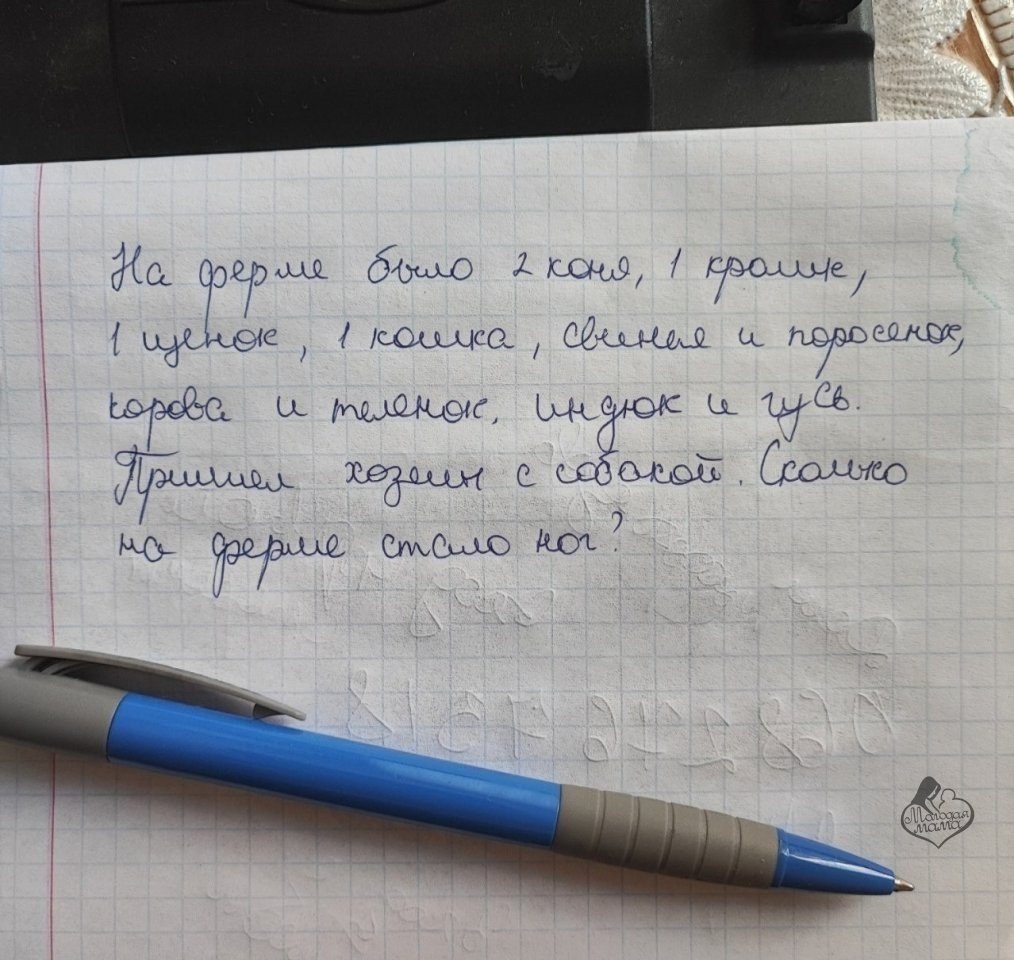 На ферме было 2 коня, 1 кролик,
1 щенок, 1 кошка, свинья и поросенок,
корова и теленок, индюк и гусь.
Пришел хозяин с собакой. Сколько
на ферме стало ног?
Молодая
мама